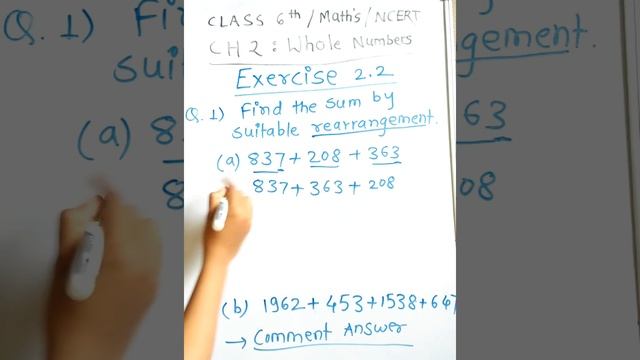 CLASS 6th / Math's / NCERT
CH 2 : Whole Numbers
Exercise 2.2
Q. 1) Find the sum by
suitable rearrangement.
(a) 837 + 208 + 363
837 + 363 + 208
(b) 1962 + 453 + 1538 + 647
→ Comment Answer